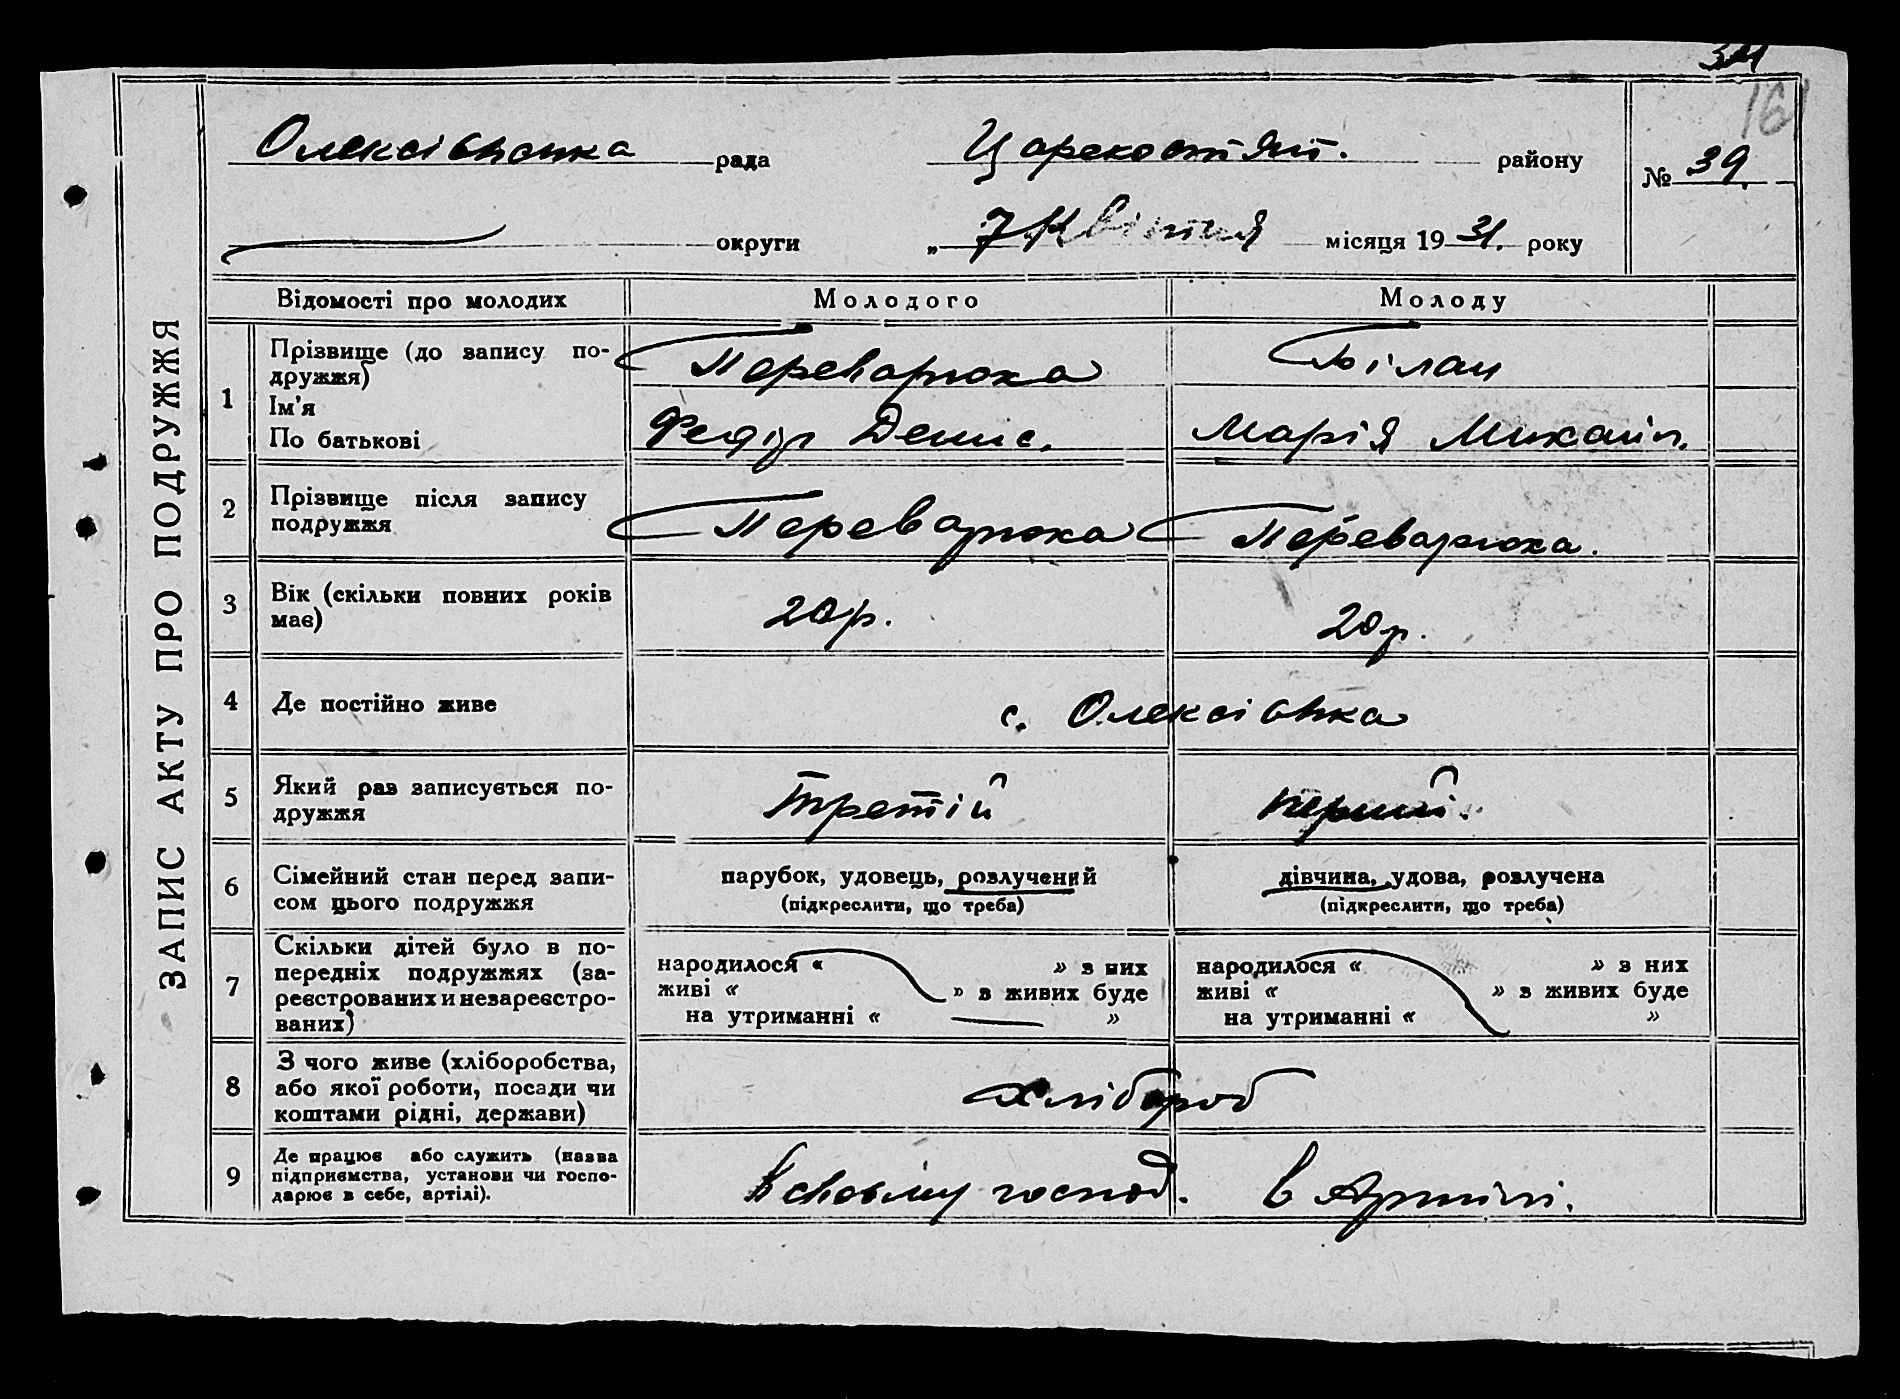 161
Олексівська рада
Царекостянт. району
№ 39.
округи
„ 7 Квітня місяця 1931. року
ЗАПИС АКТУ ПРО ПОДРУЖЖЯ
Відомості про молодих Молодого Молоду
1 Прізвище (до запису по-
дружжя) Переварюха Білан
Ім'я
По батькові Федір Денис. Марія Михайл.
2 Прізвище після запису
подружжя Переварюха Переварюха.
3 Вік (скільки повних років
має) 20р. 20р.
4 Де постійно живе с. Олексівка
5 Який раз записується по-
дружжя третій перший.
6 Сімейний стан перед запи-
сом цього подружжя
парубок, удовець, розлучений
(підкреслити, що треба)
дівчина, удова, розлучена
(підкреслити, що треба)
7 Скільки дітей було в по-
передніх подружжях (за-
реєстрованих и незареєстро-
ваних)
народилося « » з них
живі « » з живих буде
на утриманні « — »
народилося « » з них
живі « » з живих буде
на утриманні « »
8 З чого живе (хліборобства,
або якої роботи, посади чи
коштами рідні, держави)
хлібороб
9 Де працює або служить (назва
підприємства, установи чи госпо-
дарює в себе, артілі).
В своєму господ. в Артілі.